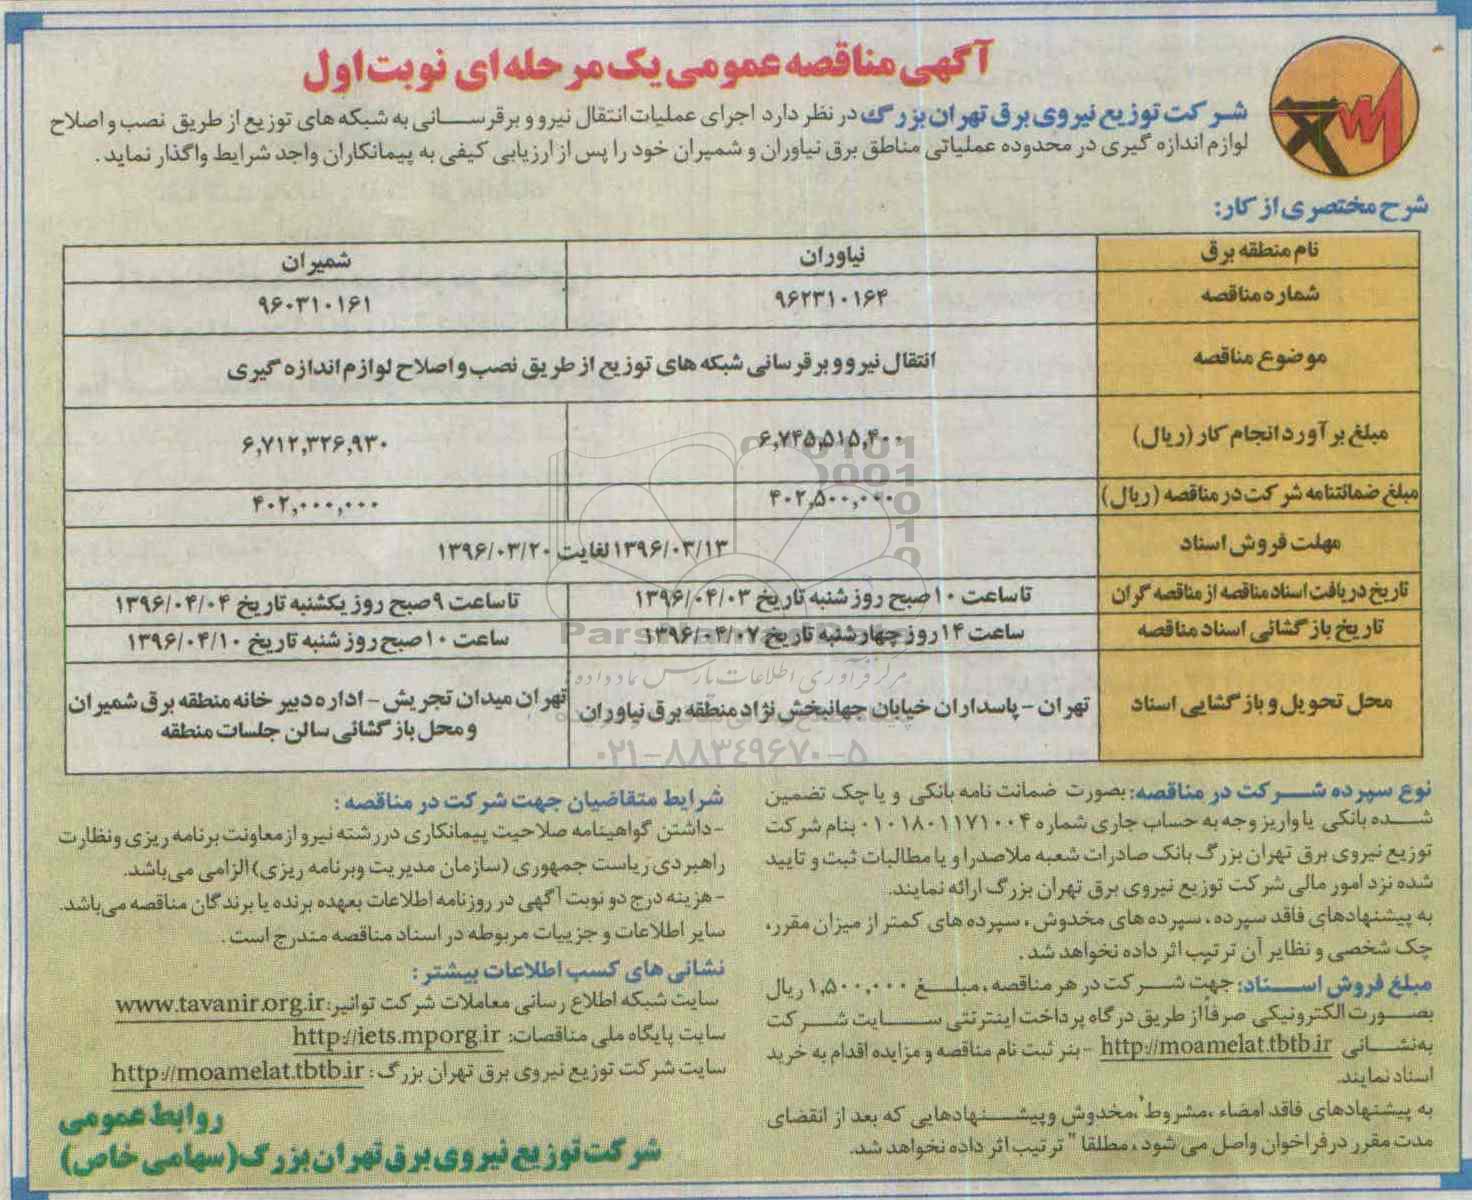 آگهی مناقصه عمومی یک مرحله ای نوبت اول
شرکت توزیع نیروی برق تهران بزرگ در نظر دارد اجرای عملیات انتقال نیرو و برقرسانی به شبکه های توزیع از طریق نصب و اصلاح
لوازم اندازه گیری در محدوده عملیاتی مناطق برق نیاوران و شمیران خود را پس از ارزیابی کیفی به پیمانکاران واجد شرایط واگذار نماید.
شرح مختصری از کار:
نام منطقه برق نیاوران شمیران
شماره مناقصه ۹۶۲۳۱۰۱۶۴ ۹۶۰۳۱۰۱۶۱
موضوع مناقصه انتقال نیرو و برقرسانی شبکه های توزیع از طریق نصب و اصلاح لوازم اندازه گیری
مبلغ برآورد انجام کار (ریال) ۶,۷۴۵,۵۱۵,۴۰۰ ۶,۷۱۲,۳۲۶,۹۳۰
مبلغ ضمانتنامه شرکت در مناقصه (ریال) ۴۰۲,۵۰۰,۰۰۰ ۴۰۲,۰۰۰,۰۰۰
مهلت فروش اسناد ۱۳۹۶/۰۳/۱۳ لغایت ۱۳۹۶/۰۳/۲۰
تاریخ دریافت اسناد مناقصه از مناقصه گران تا ساعت ۱۰ صبح روز شنبه تاریخ ۱۳۹۶/۰۴/۰۳ تا ساعت ۹ صبح روز یکشنبه تاریخ ۱۳۹۶/۰۴/۰۴
تاریخ بازگشائی اسناد مناقصه ساعت ۱۴ روز چهارشنبه تاریخ ۱۳۹۶/۰۴/۰۷ ساعت ۱۰ صبح روز شنبه تاریخ ۱۳۹۶/۰۴/۱۰
محل تحویل و بازگشایی اسناد تهران - پاسداران خیابان جهانبخش نژاد منطقه برق نیاوران تهران میدان تجریش - اداره دبیر خانه منطقه برق شمیران
و محل بازگشائی سالن جلسات منطقه
مرکز فرآوری اطلاعات پارس نماد داده
۰۲۱-۸۸۳۴۹۶۷۰-۵
نوع سپرده شرکت در مناقصه: بصورت ضمانت نامه بانکی و یا چک تضمین
شده بانکی یا واریز وجه به حساب جاری شماره ۰۱۰۱۸۰۱۱۷۱۰۰۴ بنام شرکت
توزیع نیروی برق تهران بزرگ بانک صادرات شعبه ملاصدرا و یا مطالبات ثبت و تایید
شده نزد امور مالی شرکت توزیع نیروی برق تهران بزرگ ارائه نمایند.
به پیشنهادهای فاقد سپرده، سپرده های مخدوش، سپرده های کمتر از میزان مقرر،
چک شخصی و نظایر آن ترتیب اثر داده نخواهد شد.
مبلغ فروش اسناد: جهت شرکت در هر مناقصه، مبلغ ۱,۵۰۰,۰۰۰ ریال
بصورت الکترونیکی صرفاً از طریق درگاه پرداخت اینترنتی سایت شرکت
به نشانی http://moamelat.tbtb.ir - بنر ثبت نام مناقصه و مزایده اقدام به خرید
اسناد نمایند.
به پیشنهادهای فاقد امضاء، مشروط، مخدوش و پیشنهادهایی که بعد از انقضای
مدت مقرر در فراخوان واصل می شود، مطلقا" ترتیب اثر داده نخواهد شد.
شرایط متقاضیان جهت شرکت در مناقصه:
-داشتن گواهینامه صلاحیت پیمانکاری در رشته نیرو از معاونت برنامه ریزی و نظارت
راهبردی ریاست جمهوری (سازمان مدیریت و برنامه ریزی) الزامی می باشد.
-هزینه درج دو نوبت آگهی در روزنامه اطلاعات بعهده برنده یا برندگان مناقصه می باشد.
سایر اطلاعات و جزییات مربوطه در اسناد مناقصه مندرج است.
نشانی های کسب اطلاعات بیشتر:
سایت شبکه اطلاع رسانی معاملات شرکت توانیر: www.tavanir.org.ir
سایت پایگاه ملی مناقصات: http://iets.mporg.ir
سایت شرکت توزیع نیروی برق تهران بزرگ: http://moamelat.tbtb.ir
روابط عمومی
شرکت توزیع نیروی برق تهران بزرگ (سهامی خاص)